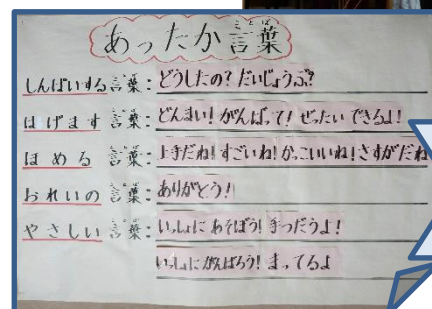 あったか言葉
しんぱいする言葉：どうしたの？だいじょうぶ？
はげます言葉：どんまい！がんばって！ぜったいできるよ！
ほめる言葉：上手だね！すごいね！かっこいいね！さすがだね
おれいの言葉：ありがとう！
やさしい言葉：いっしょにあそぼう！手つだうよ！
いっしょにがんばろう！まってるよ